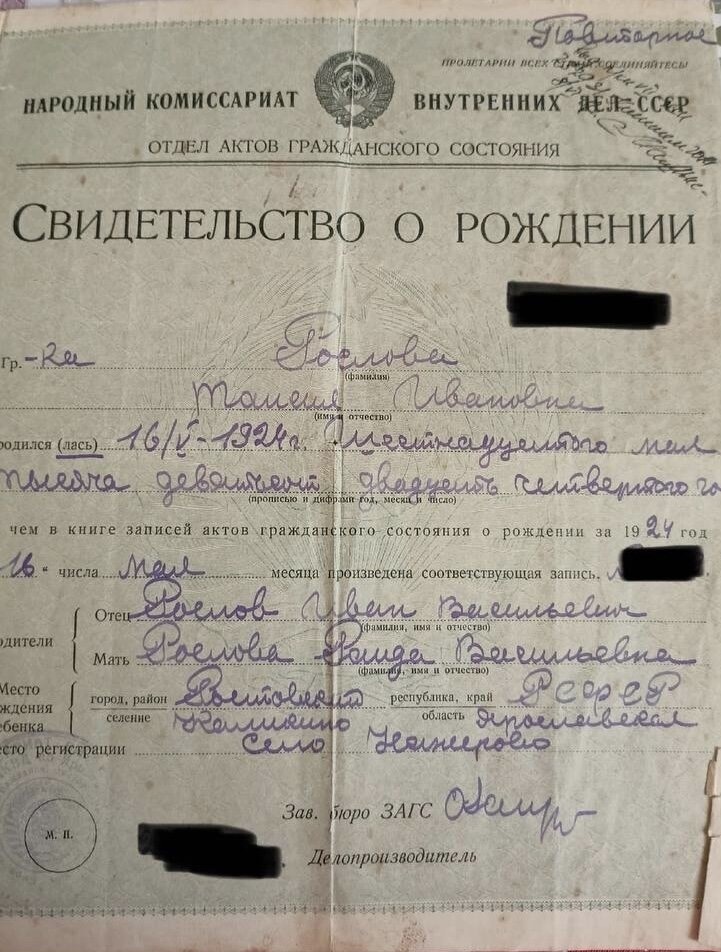 Повторное
ПРОЛЕТАРИИ ВСЕХ СТРАН, СОЕДИНЯЙТЕСЬ!
НАРОДНЫЙ КОМИССАРИАТ ВНУТРЕННИХ ДЕЛ СССР
ОТДЕЛ АКТОВ ГРАЖДАНСКОГО СОСТОЯНИЯ
СВИДЕТЕЛЬСТВО О РОЖДЕНИИ
Гр.-ка Рослова
(фамилия)
Таисия Ивановна
(имя и отчество)
родился (лась) 16/V-1924г. Шестнадцатого мая
тысяча девятьсот двадцать четвертого го
(прописью и цифрами год, месяц и число)
чем в книге записей актов гражданского состояния о рождении за 1924 год
16 числа мая месяца произведена соответствующая запись.
Отец Рослов Иван Васильевич
(фамилия, имя и отчество)
одители
Мать Рослова Раида Васильевна
(фамилия, имя и отчество)
Место город, район Ростовский республика, край РСФСР
ждения селение область Ярославская
бенка
сто регистрации Село
Зав. бюро ЗАГС
М. П.
Делопроизводитель